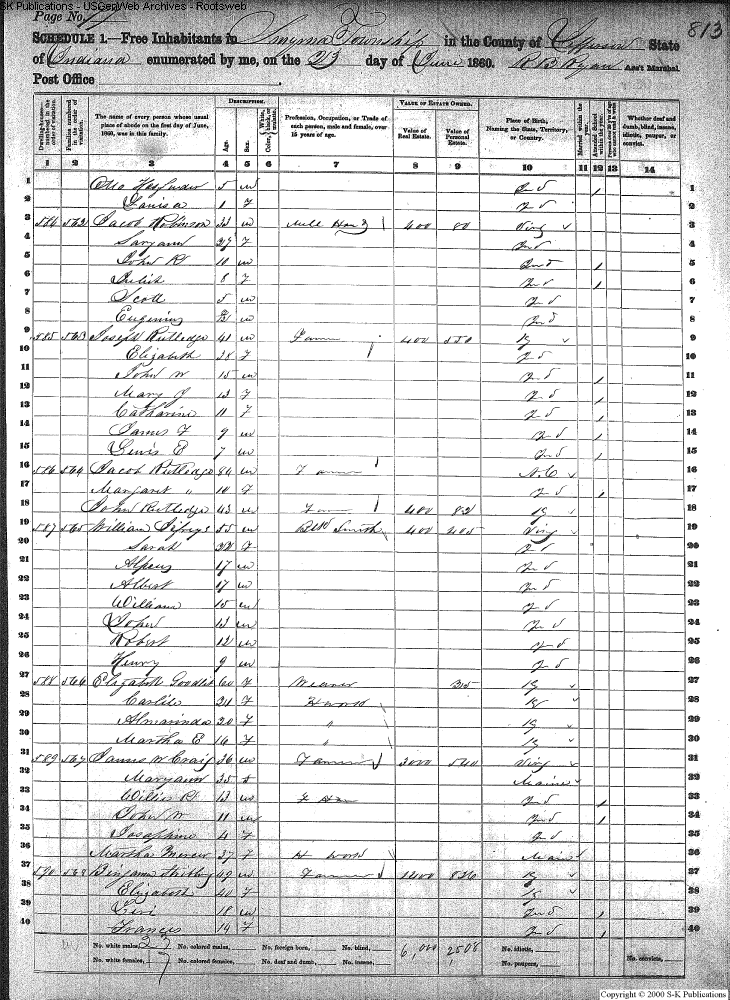 SK Publications - USGenWeb Archives - Rootsweb
Page No.
813
SCHEDULE 1.—Free Inhabitants in Smyrna Township in the County of Jefferson State
of Indiana enumerated by me, on the 23 day of June 1860. R B Ryan Ass't Marshal.
Post Office
Dwelling-houses—numbered in the order of visitation.
Families numbered in the order of visitation.
The name of every person whose usual place of abode on the first day of June, 1860, was in this family.
DESCRIPTION.
Age.
Sex.
Color, White, black, or mulatto.
Profession, Occupation, or Trade of each person, male and female, over 15 years of age.
VALUE OF ESTATE OWNED.
Value of Real Estate.
Value of Personal Estate.
Place of Birth, Naming the State, Territory, or Country.
Married within the year.
Whether deaf and dumb, blind, insane, idiotic, pauper, or convict.
1 2 3 4 5 6 7 8 9 10 11 12 13 14
1 5 m Ind 1 1
2 Louisa 1 F Ind 2
3 584 562 Jacob Robinson m Mill Hand 400 80 Virg 3
4 Saryann 27 F Ind 4
5 John R 10 m Ind 1 5
6 8 F Ind 1 6
7 Scott 5 m Ind 7
8 m Ind 8
9 585 563 Joseph Rutledge 41 m Farmer 400 550 Ky 9
10 Elizabeth 38 F Ind 10
11 John W 15 m Ind 1 11
12 Mary J 13 F Ind 1 12
13 Catharine 11 F Ind 1 13
14 James F 9 m Ind 1 14
15 Lewis E 7 m Ind 1 15
16 586 564 Jacob Rutledge 84 m Farmer N.C 16
17 Margaret " F Ind 1 17
18 John Rutledge 43 m Farmer 400 82 Ky 18
19 587 565 William 55 m Blk Smith 400 405 Virg 19
20 Sarah F Ind 20
21 Alpheus 17 m Ind 21
22 Albert 17 m Ind 22
23 William 15 m Ind 23
24 John 13 m Ind 24
25 Robert 12 m Ind 25
26 Henry 9 m Ind 26
27 588 566 Elizabeth 60 F Weaver 315 Ky 27
28 F H work Ky 28
29 Almarinda 20 F " Ky 29
30 Martha E 16 F " Ky 30
31 589 567 James W Craig 36 m Farmer 3000 540 Virg 31
32 Maryann 35 F Maine 32
33 Willis R 13 m Ind 1 33
34 John W 11 m Ind 1 34
35 Josephine 4 F Ind 35
36 Martha 27 F H work Main 36
37 590 568 Benjamin 49 m Farmer 1400 826 Ky 37
38 Elizabeth 40 F Ky 38
39 Levi 18 m Ind 1 39
40 Francis 14 F Ind 1 40
No. white males, No. colored males, No. foreign born, No. blind, 6,000 2508 No. idiotic, No. convicts,
No. white females, No. colored females, No. deaf and dumb, No. insane, No. paupers,
Copyright © 2000 S-K Publications